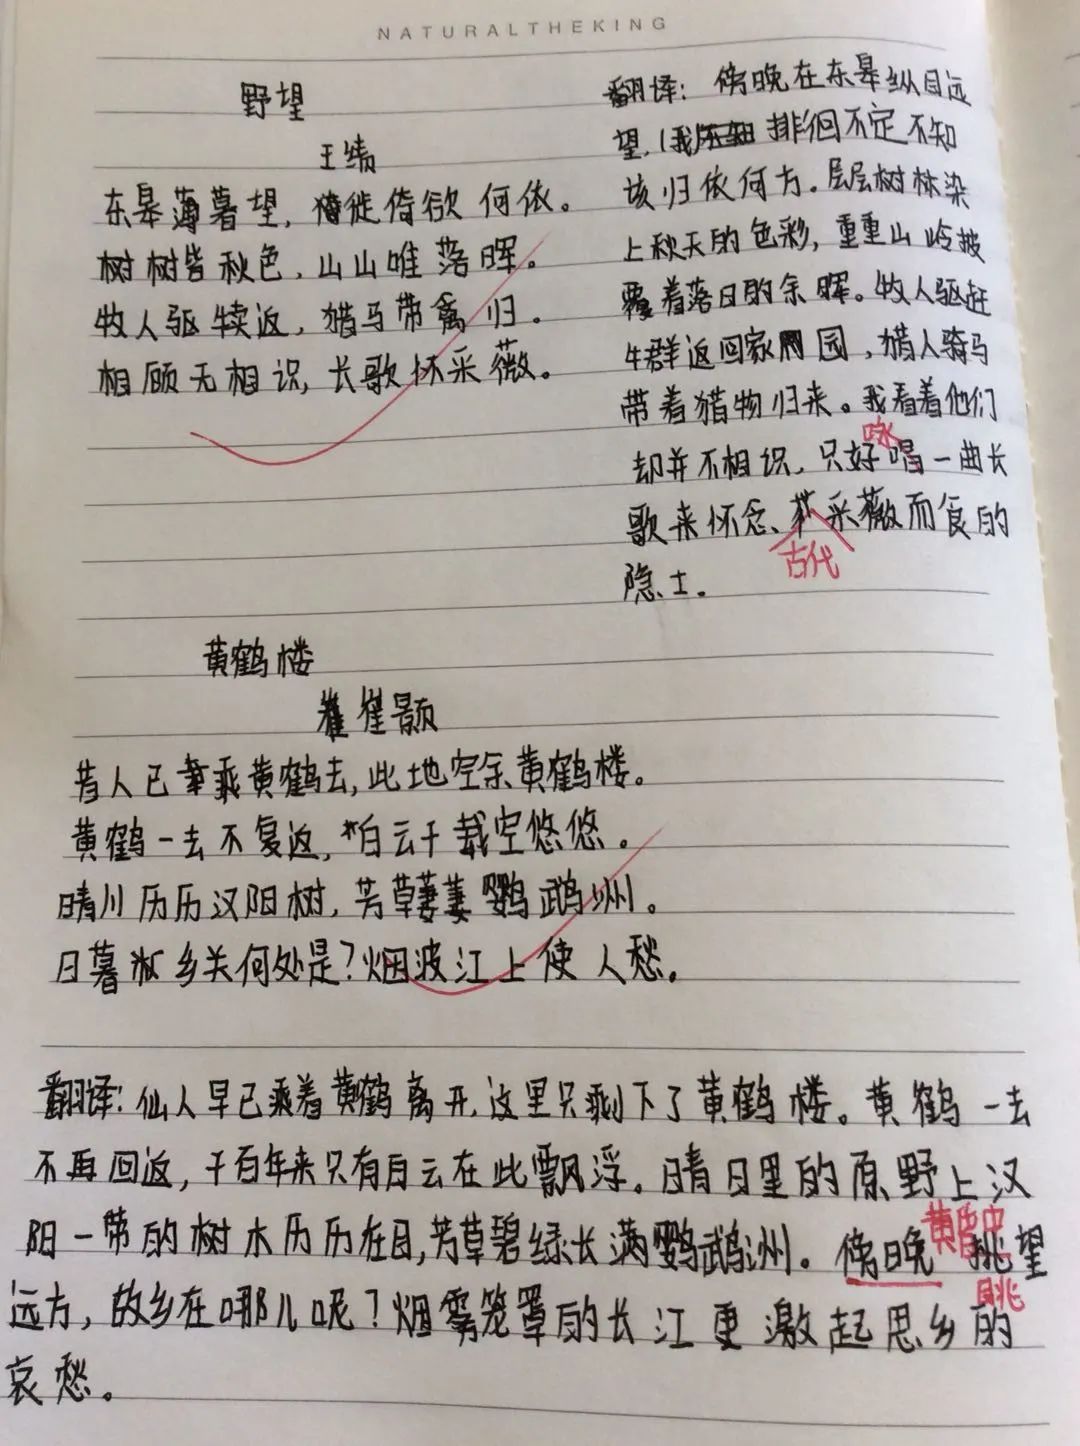 NATURALTHEKING
野望
王绩
东皋薄暮望，徙倚欲何依。
树树皆秋色，山山唯落晖。
牧人驱犊返，猎马带禽归。
相顾无相识，长歌怀采薇。
翻译：傍晚在东皋纵目远
望，我徘徊不定不知
该归依何方。层层树林染
上秋天的色彩，重重山岭披
覆着落日的余晖。牧人驱赶
牛群返回家园，猎人骑马
带着猎物归来。我看着他们
咏
却并不相识，只好唱一曲长
歌来怀念、采薇而食的
古代
隐士。
黄鹤楼
崔颢
昔人已乘黄鹤去，此地空余黄鹤楼。
黄鹤一去不复返，白云千载空悠悠。
晴川历历汉阳树，芳草萋萋鹦鹉洲。
日暮乡关何处是？烟波江上使人愁。
翻译：仙人早已乘着黄鹤离开，这里只剩下了黄鹤楼。黄鹤一去
不再回返，千百年来只有白云在此飘浮。晴日里的原野上汉
阳一带的树木历历在目，芳草碧绿长满鹦鹉洲。傍晚挑望
黄昏中
眺
远方，故乡在哪儿呢？烟雾笼罩的长江更激起思乡的
哀愁。